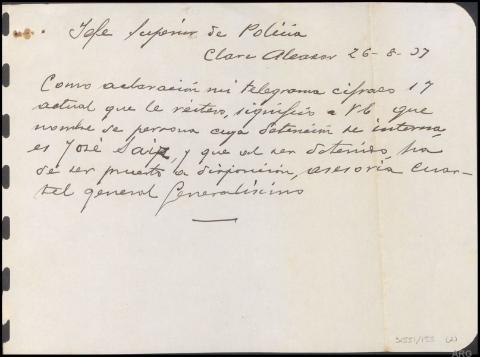 Jefe Superior de Policia
Clave 26-8-37
Como aclaración mi telegrama cifrado 17
actual que le reitero, significo a Vd que
nombre de persona cuya detención se interesa
es José y que al ser detenido ha
de ser puesto a disposición, asesoría Cuar-
tel general Generalísimo
(2)
ARG